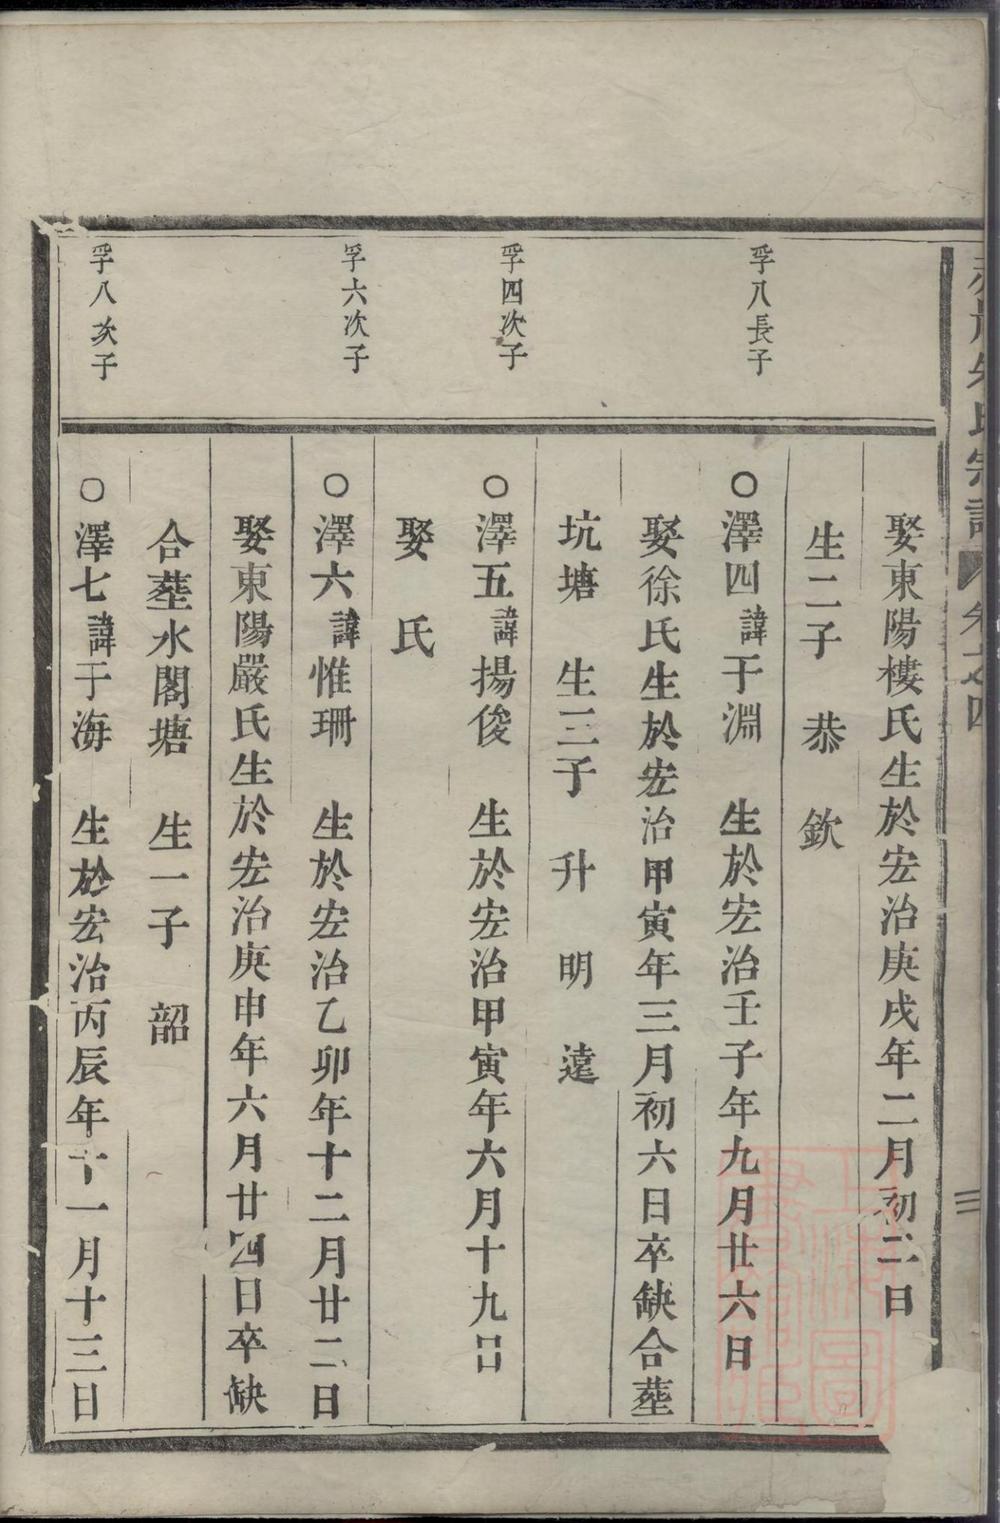 朱氏宗譜 卷之四 三
娶東陽樓氏生於宏治庚戌年二月初二日
生二子 恭 欽
孚八長子
○澤四諱于淵 生於宏治壬子年九月廿六日
娶徐氏生於宏治甲寅年三月初六日卒缺合塟
坑塘 生三子 升 明 遠
孚四次子
○澤五諱揚俊 生於宏治甲寅年六月十九日
娶 氏
孚六次子
○澤六諱惟珊 生於宏治乙卯年十二月廿二日
娶東陽嚴氏生於宏治庚申年六月廿四日卒缺
合塟水閣塘 生一子 韶
孚八次子
○澤七諱于海 生於宏治丙辰年十一月十三日
上海圖書館藏